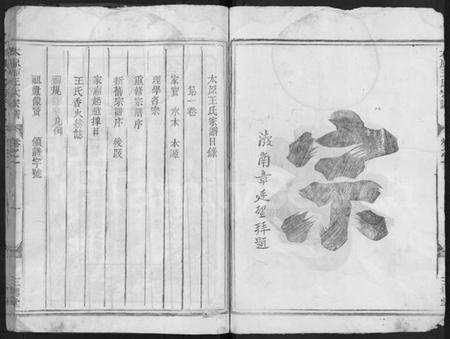 太原王氏宗譜
宗
後南章廷璧拜題
太原王氏家譜目錄
第一卷
家寶 水木 本源
理學名宗
重修宗譜序
新舊宗譜序 後跋
家廟起造擇日
王氏香火
規 凡例
祖遺像贊 領譜字號
太原王氏宗譜
卷之一